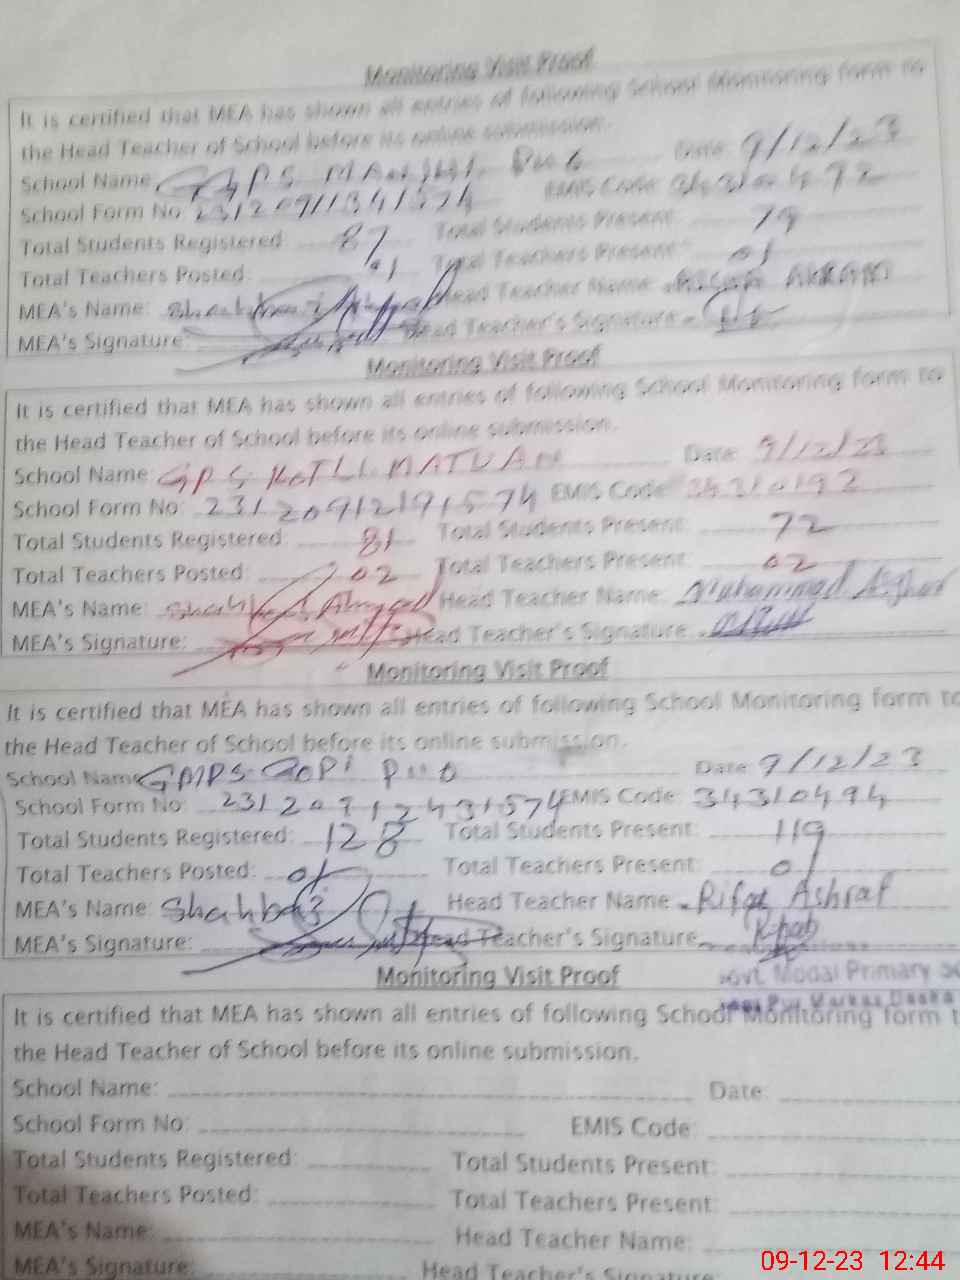 Monitoring Visit Proof
It is certified that MEA has shown all entries of following School Monitoring form to
the Head Teacher of School before its online submission.
School Name: Date: 9/12/23
School Form No: EMIS Code:
Total Students Registered: 87 Total Students Present: 79
Total Teachers Posted: 01 Total Teachers Present: 01
MEA's Name: Head Teacher Name:
MEA's Signature: Head Teacher's Signature
Monitoring Visit Proof
It is certified that MEA has shown all entries of following School Monitoring form to
the Head Teacher of School before its online submission.
School Name: GPS KOTLI Date: 9/12/23
School Form No: 23120912191574 EMIS Code: 34310192
Total Students Registered: 81 Total Students Present: 72
Total Teachers Posted: 02 Total Teachers Present: 02
MEA's Name: Shahbaz Ahmad Head Teacher Name: Muhammad Asghar
MEA's Signature: Head Teacher's Signature
Monitoring Visit Proof
It is certified that MEA has shown all entries of following School Monitoring form to
the Head Teacher of School before its online submission.
School Name GMPS GOPI PUR Date 9/12/23
School Form No: 23120912431574 EMIS Code: 34310494
Total Students Registered: 128 Total Students Present: 119
Total Teachers Posted: 01 Total Teachers Present: 01
MEA's Name: Shahbaz Head Teacher Name: Rifat Ashraf
MEA's Signature: Head Teacher's Signature
Govt. Modal Primary
Monitoring Visit Proof
Pur Markaz Daska
It is certified that MEA has shown all entries of following School Monitoring form t
the Head Teacher of School before its online submission.
School Name: Date:
School Form No: EMIS Code:
Total Students Registered: Total Students Present:
Total Teachers Posted: Total Teachers Present:
MEA's Name: Head Teacher Name:
MEA's Signature: Head Teacher's Signature
09-12-23 12:44